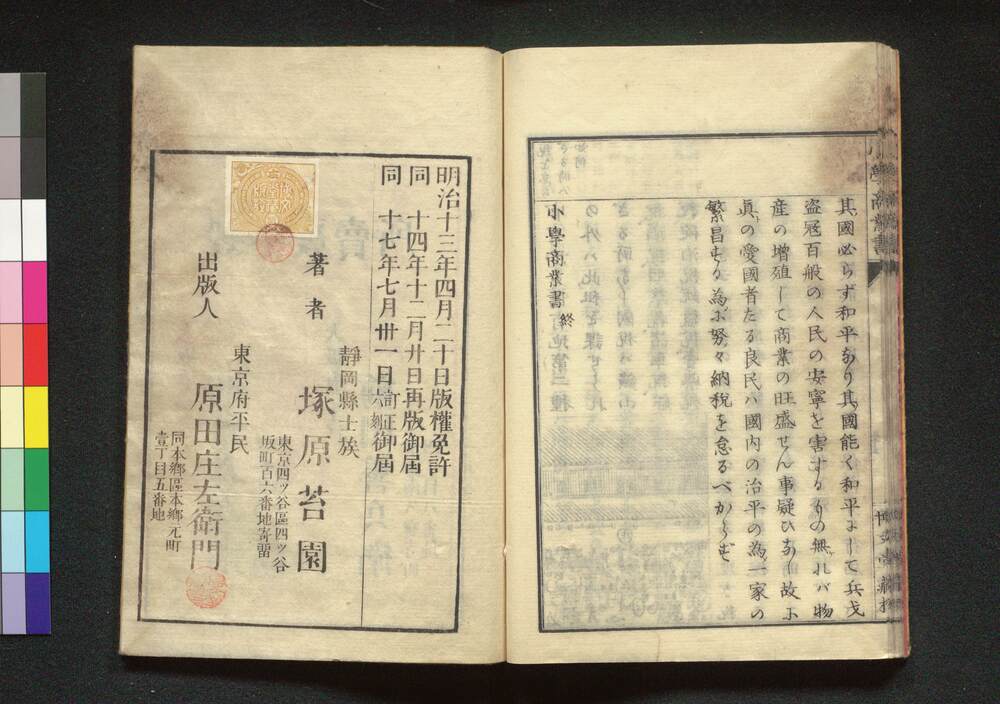 其國必らず和平なり其國能く和平にして兵戈
盗冦百般の人民の安寧を害するもの無れバ物
産の増殖して商業の旺盛せん事疑ひなし故に
眞の愛國者たる良民ハ國内の治平の為一家の
繁昌する為に努々納税を怠るべからず
小學商業書 終
明治十三年四月二十日版權免許
同 十四年十二月廿日再版御屆
同 十七年七月卅一日訂正六刻御屆
靜岡縣士族
著者 塚原苔園
東京四ッ谷區四ッ谷
坂町百六番地寄留
東京府平民
出版人 原田庄左衛門
同本鄉區本鄉元町
壹丁目五番地